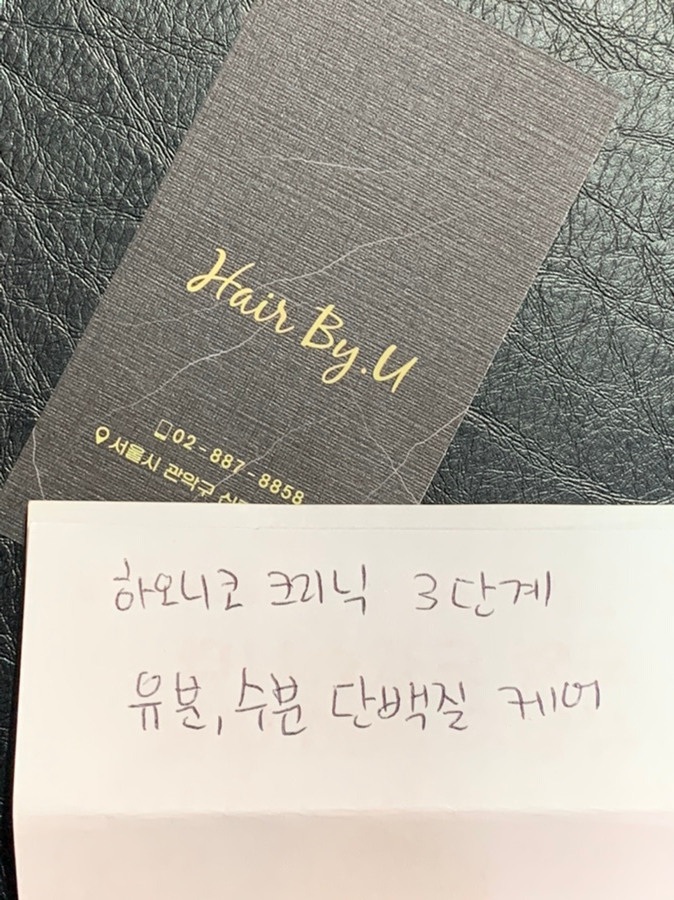 Hair By.U
02-887-8858
서울시 관악구
하오니코 크리닉 3단계
유분, 수분 단백질 케어